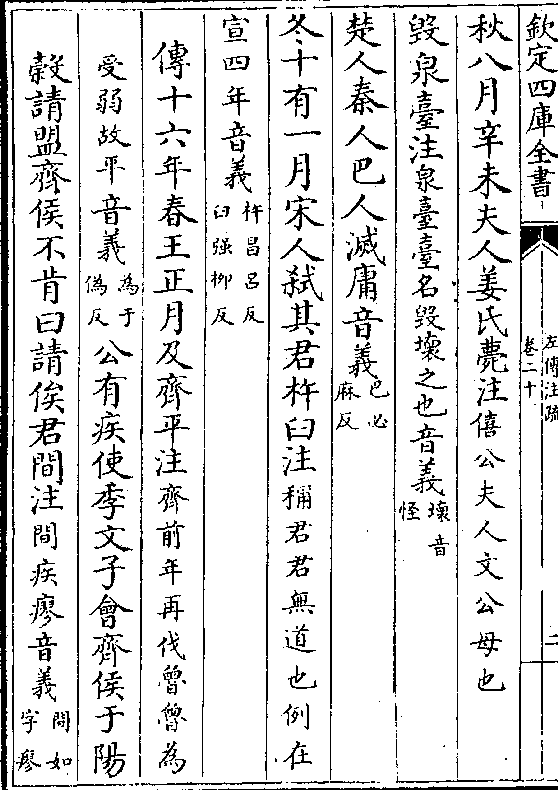 欽定四庫全書
左傳注疏
卷二十
二
秋八月辛未夫人姜氏薨注僖公夫人文公母也
毀泉臺注泉臺臺名毀壞之也音義壞音
怪
楚人秦人巴人滅庸音義巴必
麻反
冬十有一月宋人弑其君杵臼注稱君君無道也例在
宣四年音義杵昌呂反
臼强柳反
傳十六年春王正月及齊平注齊前年再伐魯魯為
受弱故平音義為于
偽反公有疾使季文子會齊侯于陽
穀請盟齊侯不肯曰請俟君間注間疾瘳音義間如
字瘳